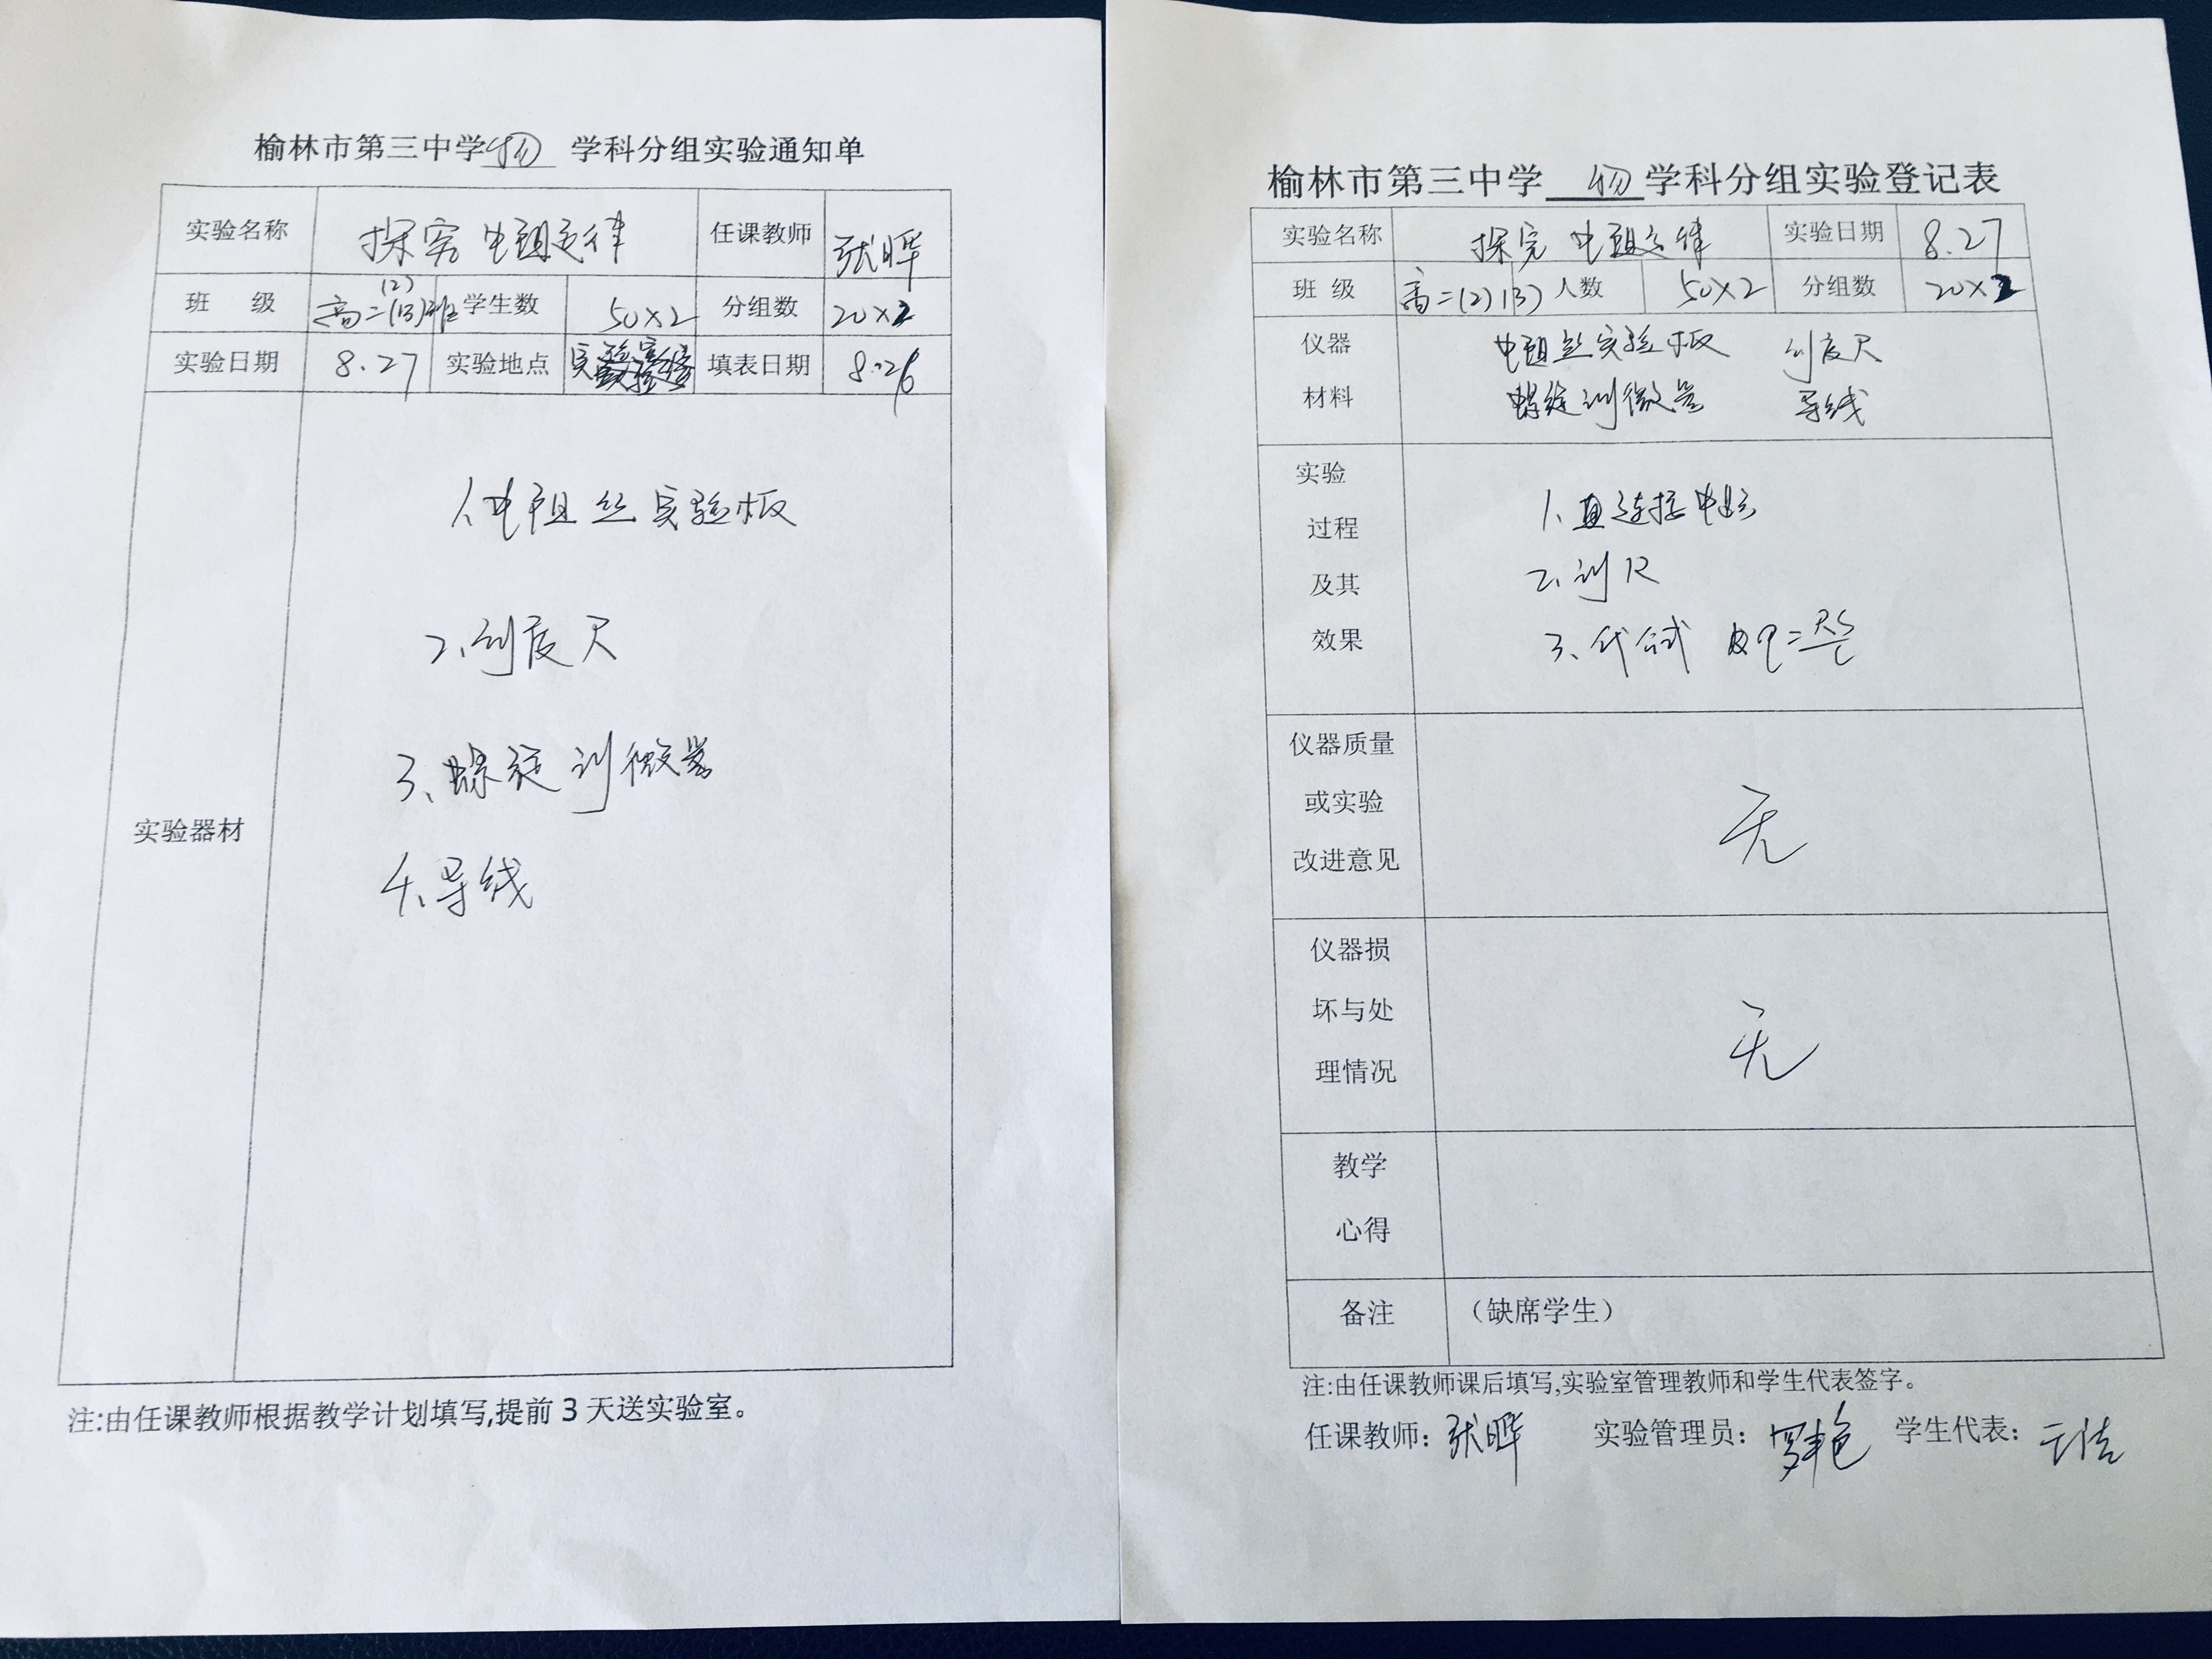 榆林市第三中学 物 学科分组实验通知单
实验名称 探究电阻定律 任课教师 张晔
班 级 高二(2)(13)班 学生数 50×2 分组数 20×2
实验日期 8.27 实验地点 实验室 填表日期 8.26
实验器材
1、电阻丝实验板
2、刻度尺
3、螺旋测微器
4、导线
注:由任课教师根据教学计划填写,提前3天送实验室。
榆林市第三中学 物 学科分组实验登记表
实验名称 探究电阻定律 实验日期 8.27
班 级 高二(2)(13) 人数 50×2 分组数 20×2
仪器 电阻丝实验板 刻度尺
材料 螺旋测微器 导线
实验
过程
及其
效果
1、连接电路
2、测R
3、代公式 ρ=RS/L
仪器质量
或实验
改进意见
无
仪器损
坏与处
理情况
无
教学
心得
备注 （缺席学生）
注:由任课教师课后填写,实验室管理教师和学生代表签字。
任课教师: 张晔 实验管理员: 罗艳 学生代表: